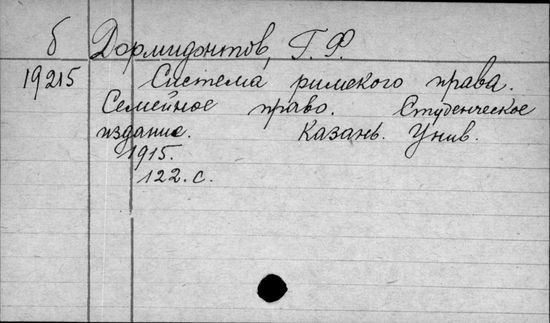 б Дормидонтов, Г. Ф.
19215 Система римского права.
Семейное право. Студенческое
издание. Казань. Унив.
1915.
122. с.